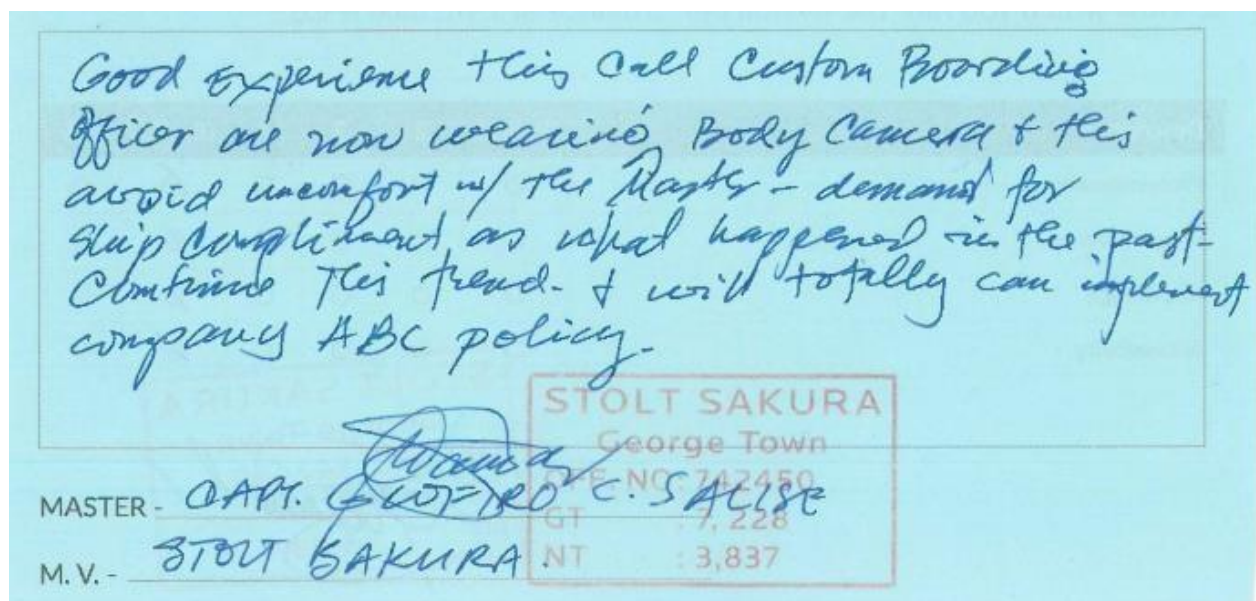 Good Experience this Call Custom Boarding
Officer are now wearing Body Camera & this
avoid uncomfort w/ the Master - demand for
Ship Compliment as what happened in the past -
Continue this trend - & will totally can implement
company ABC policy.
STOLT SAKURA
George Town
OFF NO: 742450
GT : 7,228
NT : 3,837
MASTER - CAPT. C. SALISE
M. V. - STOLT SAKURA.